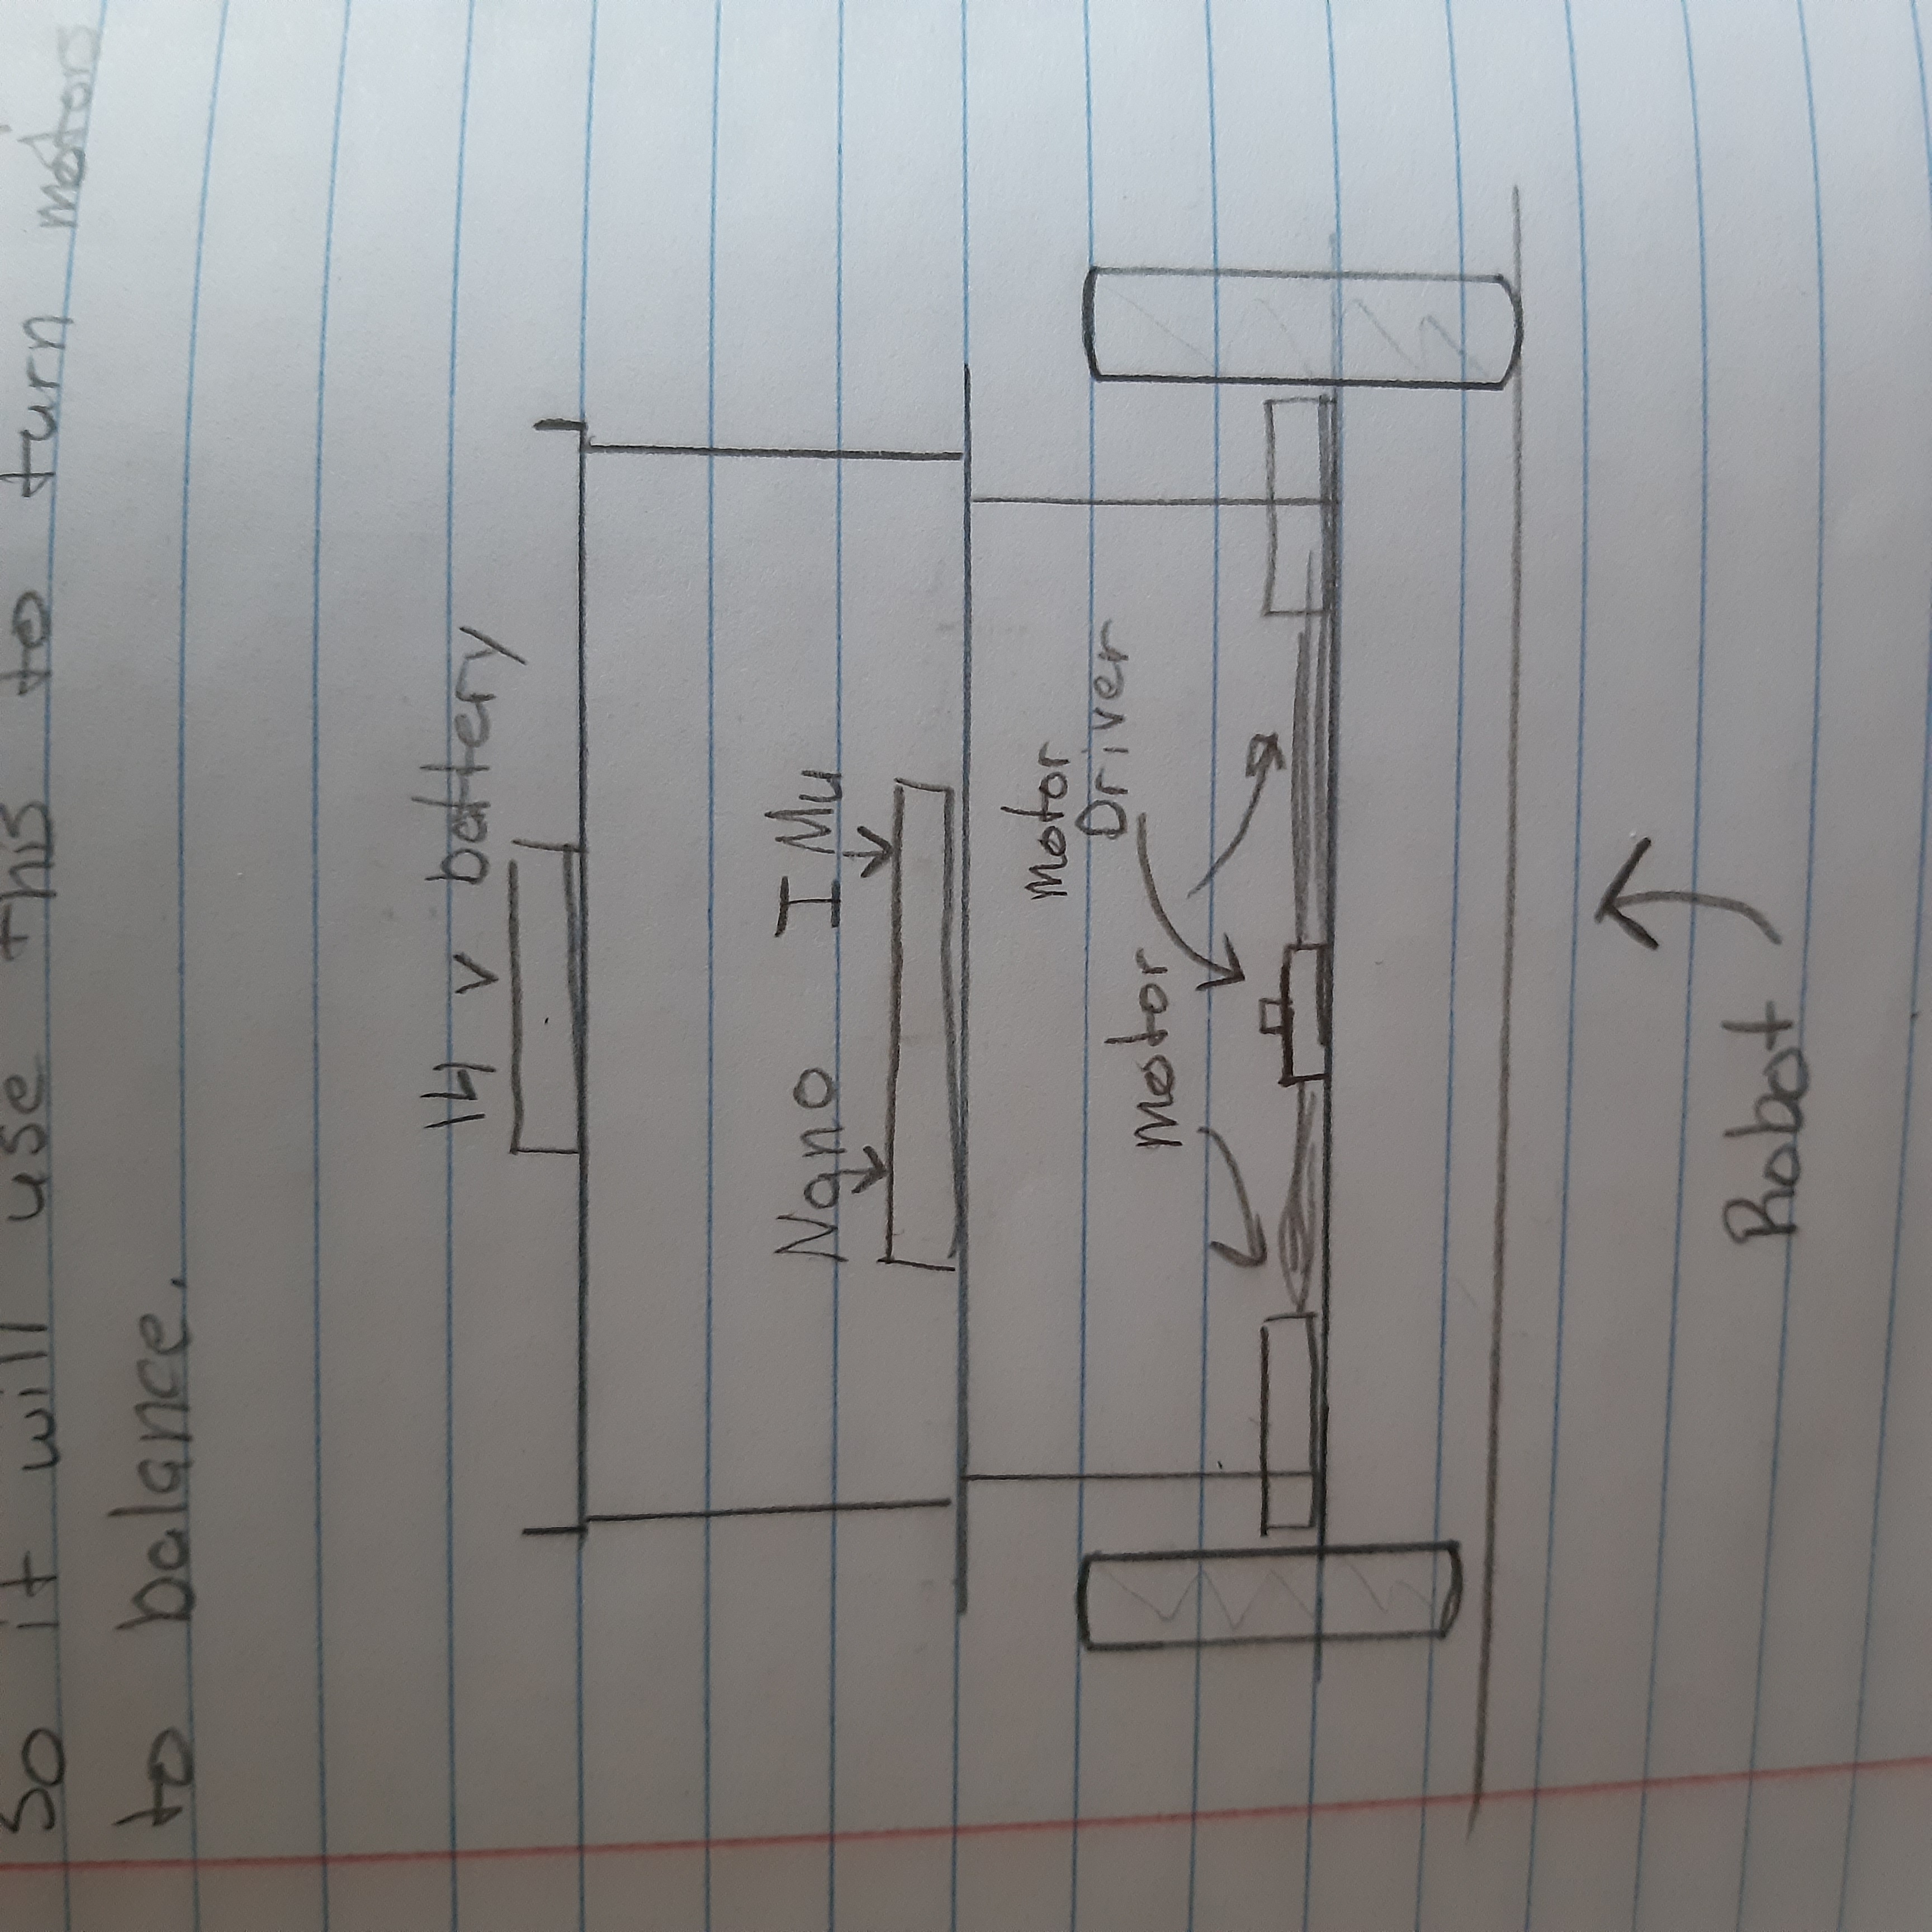 So it will use this to turn motors
to balance.
14 v battery
Nano IMu
motor
Driver
motor
Robot